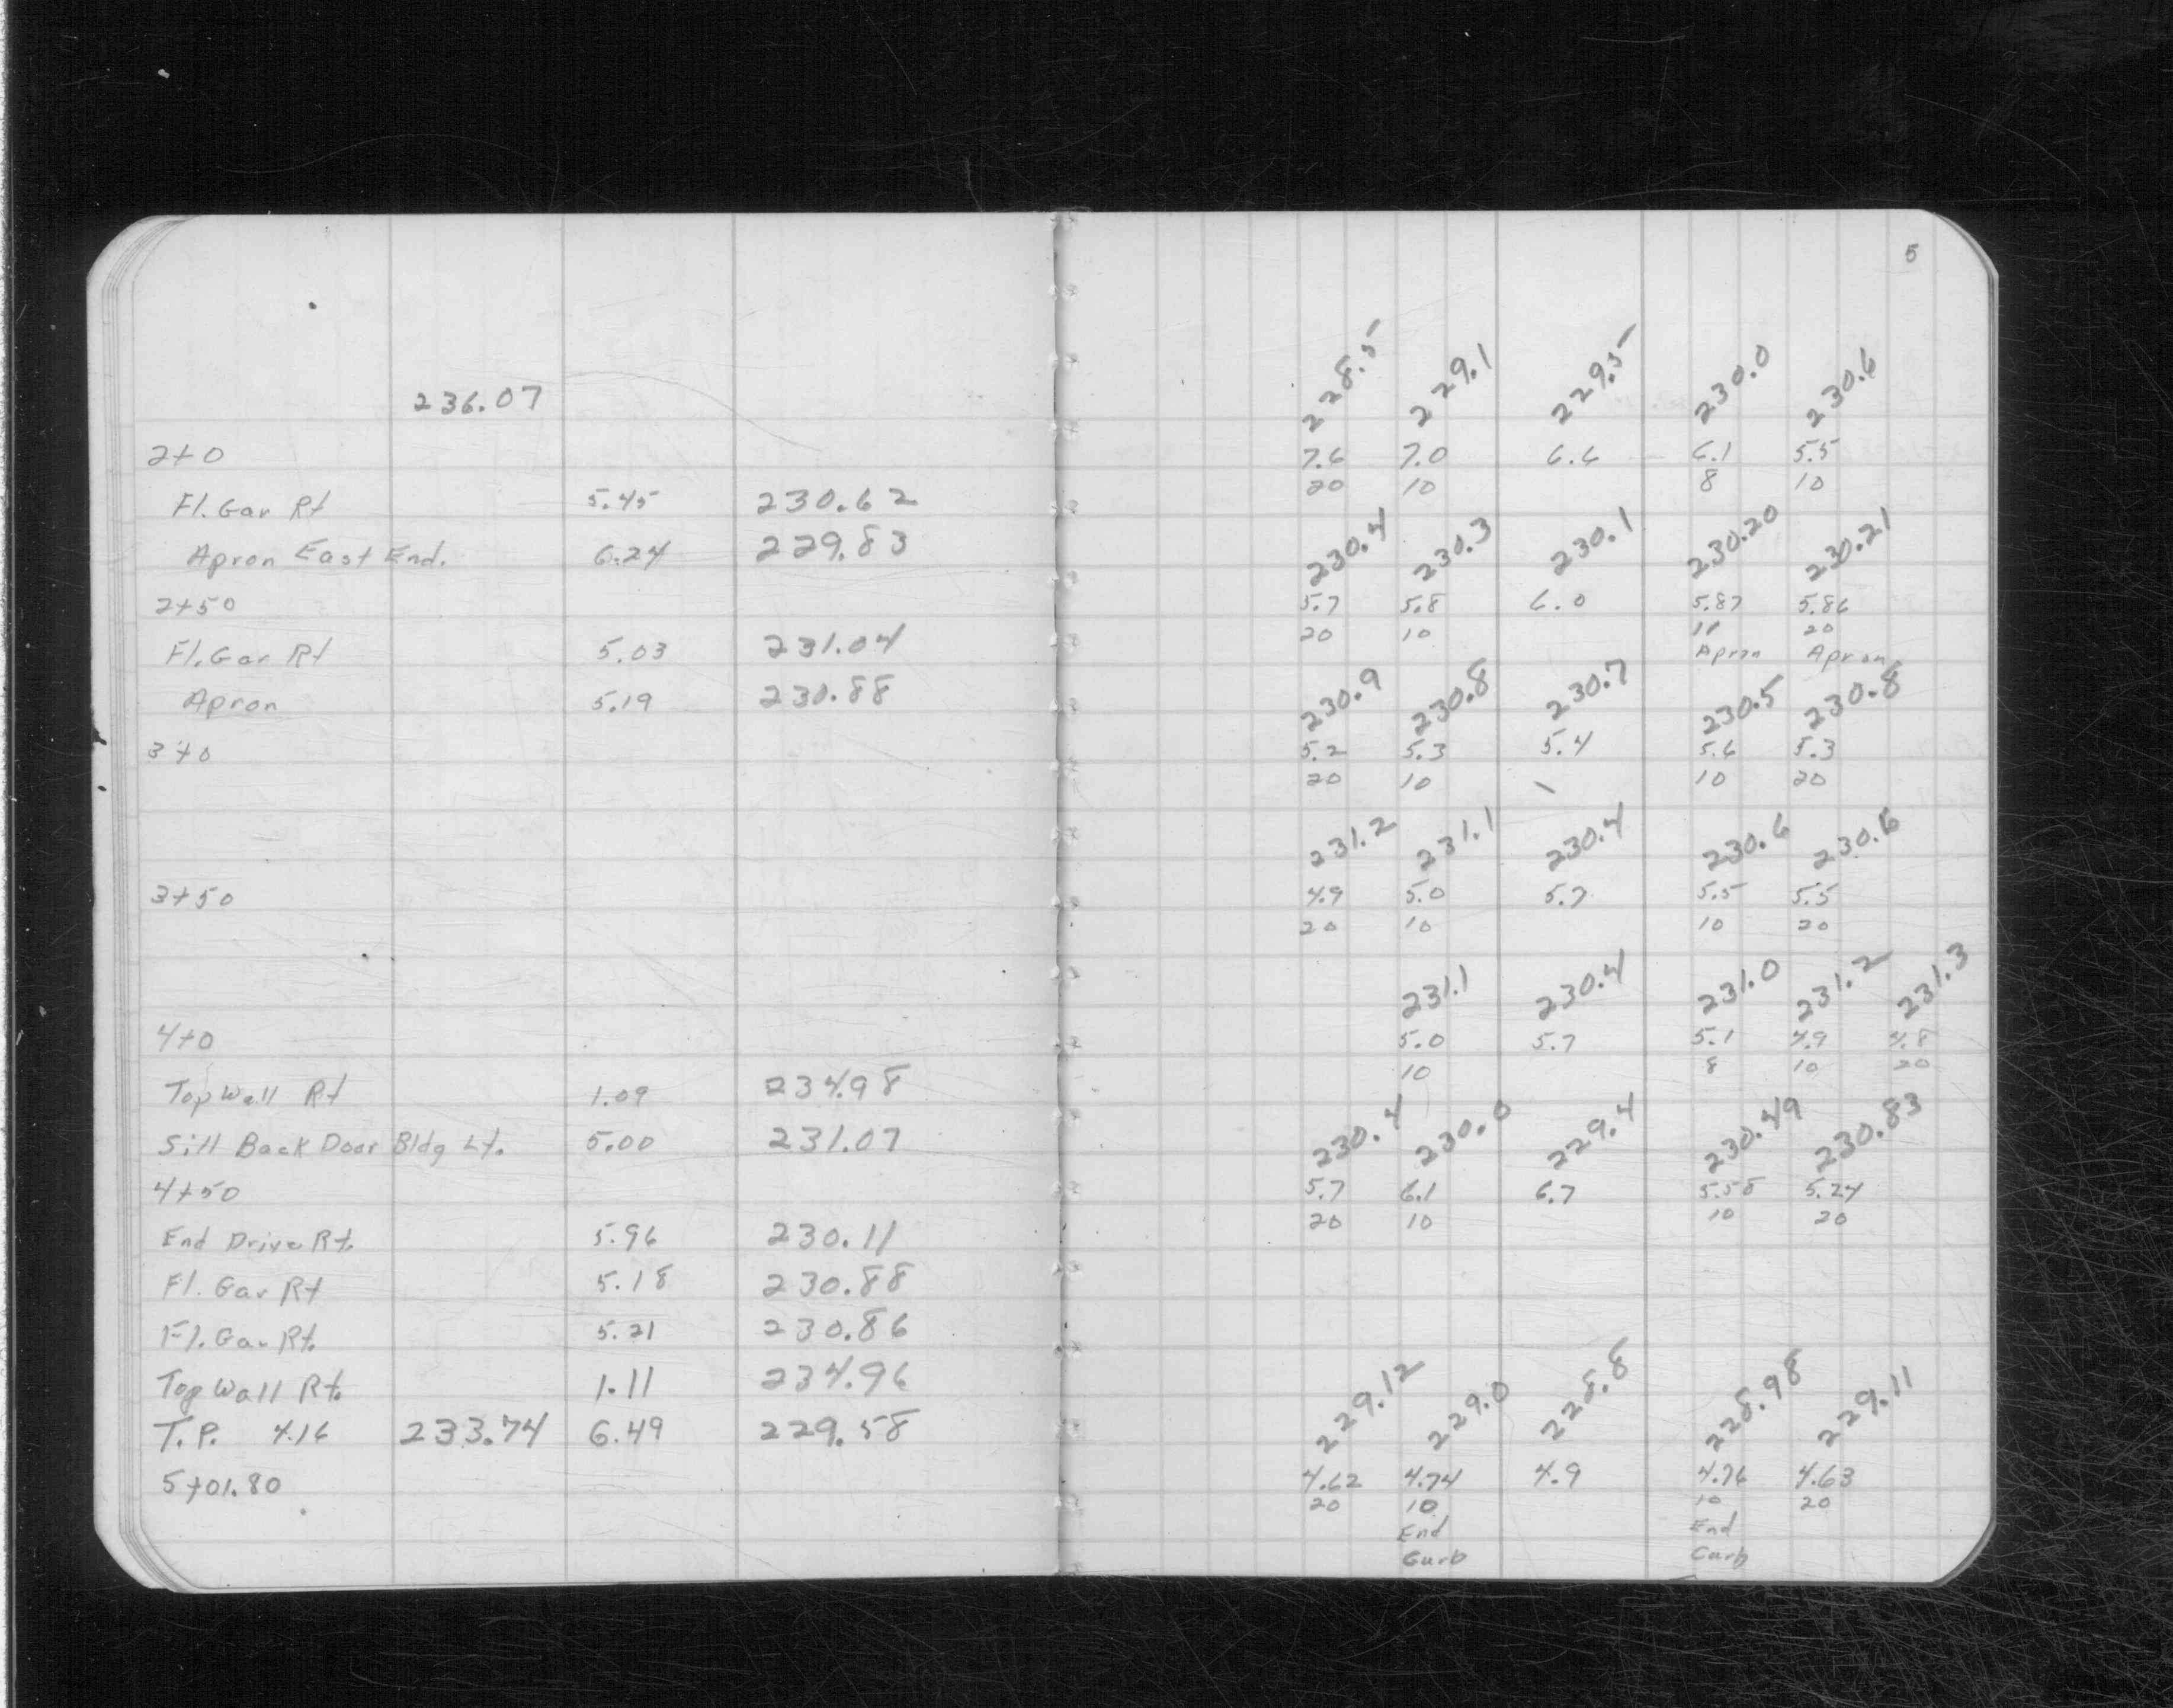 5
236.07
228.5 229.1 229.5 230.0 230.6
2+0 7.6 7.0 6.6 6.1 5.5
20 10 8 10
Fl. Gar Rt 5.45 230.62
230.4 230.3 230.1 230.20 230.21
Apron East End. 6.24 229.83
2+50 5.7 5.8 6.0 5.87 5.86
20 10 11 20
Apron Apron
Fl. Gar Rt 5.03 231.04
230.9 230.8 230.7 230.5 230.8
Apron 5.19 230.88
3+0 5.2 5.3 5.4 5.6 5.3
20 10 10 20
231.2 231.1 230.4 230.6 230.6
3+50 4.9 5.0 5.7 5.5 5.5
20 10 10 20
231.1 230.4 231.0 231.2 231.3
4+0 5.0 5.7 5.1 4.9 4.8
10 8 10 20
Top Wall Rt 1.09 234.98
230.4 230.0 229.4 230.49 230.83
Sill Back Door Bldg Lt. 5.00 231.07
4+50 5.7 6.1 6.7 5.58 5.24
20 10 10 20
End Drive Rt. 5.96 230.11
Fl. Gar Rt 5.18 230.88
Fl. Gar Rt. 5.21 230.86
Top Wall Rt. 1.11 234.96
229.12 229.0 228.8 228.98 229.11
T.P. 4.16 233.74 6.49 229.58
5+01.80 4.62 4.74 4.9 4.76 4.63
20 10 10 20
End End
Curb Curb